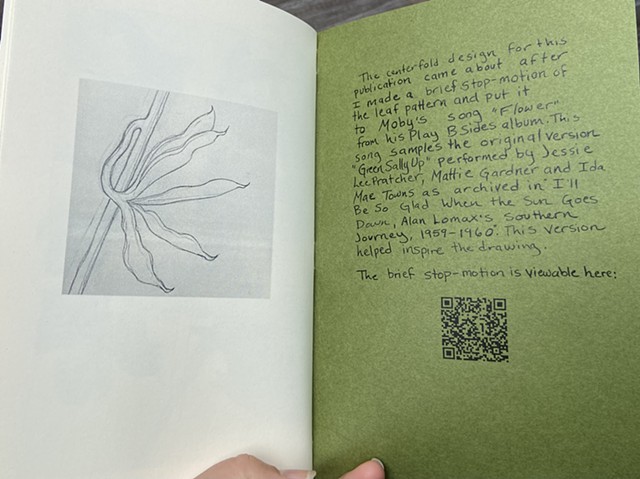 The centerfold design for this
publication came about after
I made a brief stop-motion of
the leaf pattern and put it
to Moby's song "Flower"
from his Play B sides album. This
song samples the original version
"Green Sally Up" performed by Jessie
Lee Pratcher, Mattie Gardner and Ida
Mae Towns as archived in "I'll
Be So Glad When the Sun Goes
Down, Alan Lomax's Southern
Journey, 1959-1960". This version
helped inspire the drawing.
The brief stop-motion is viewable here: